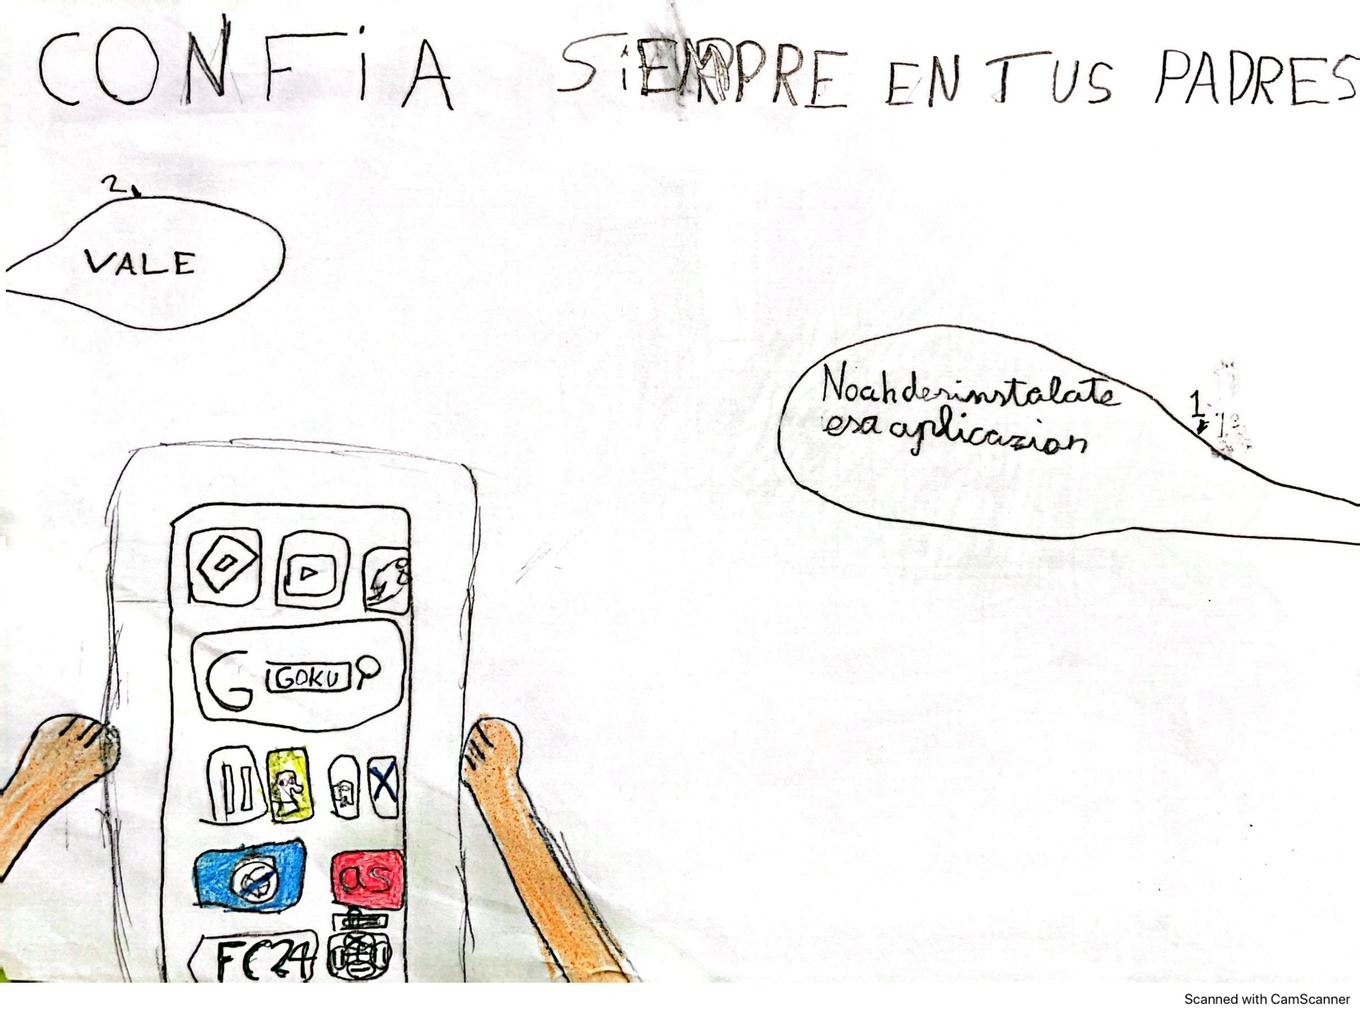 CONFiA SiEMPRE EN TUS PADRES
2
VALE
Noah desinstalate
esa aplicazion
1
G GOKU
X
as
FC24
Scanned with CamScanner